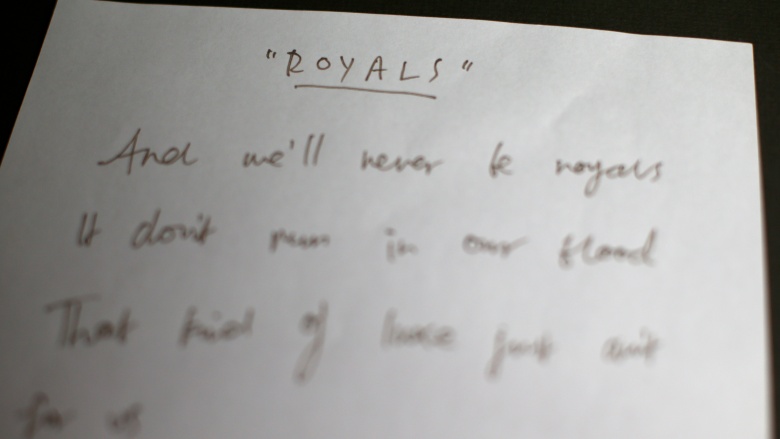 "ROYALS"
And we'll never be royals
It don't run in our blood
That kind of luxe just ain't
for us